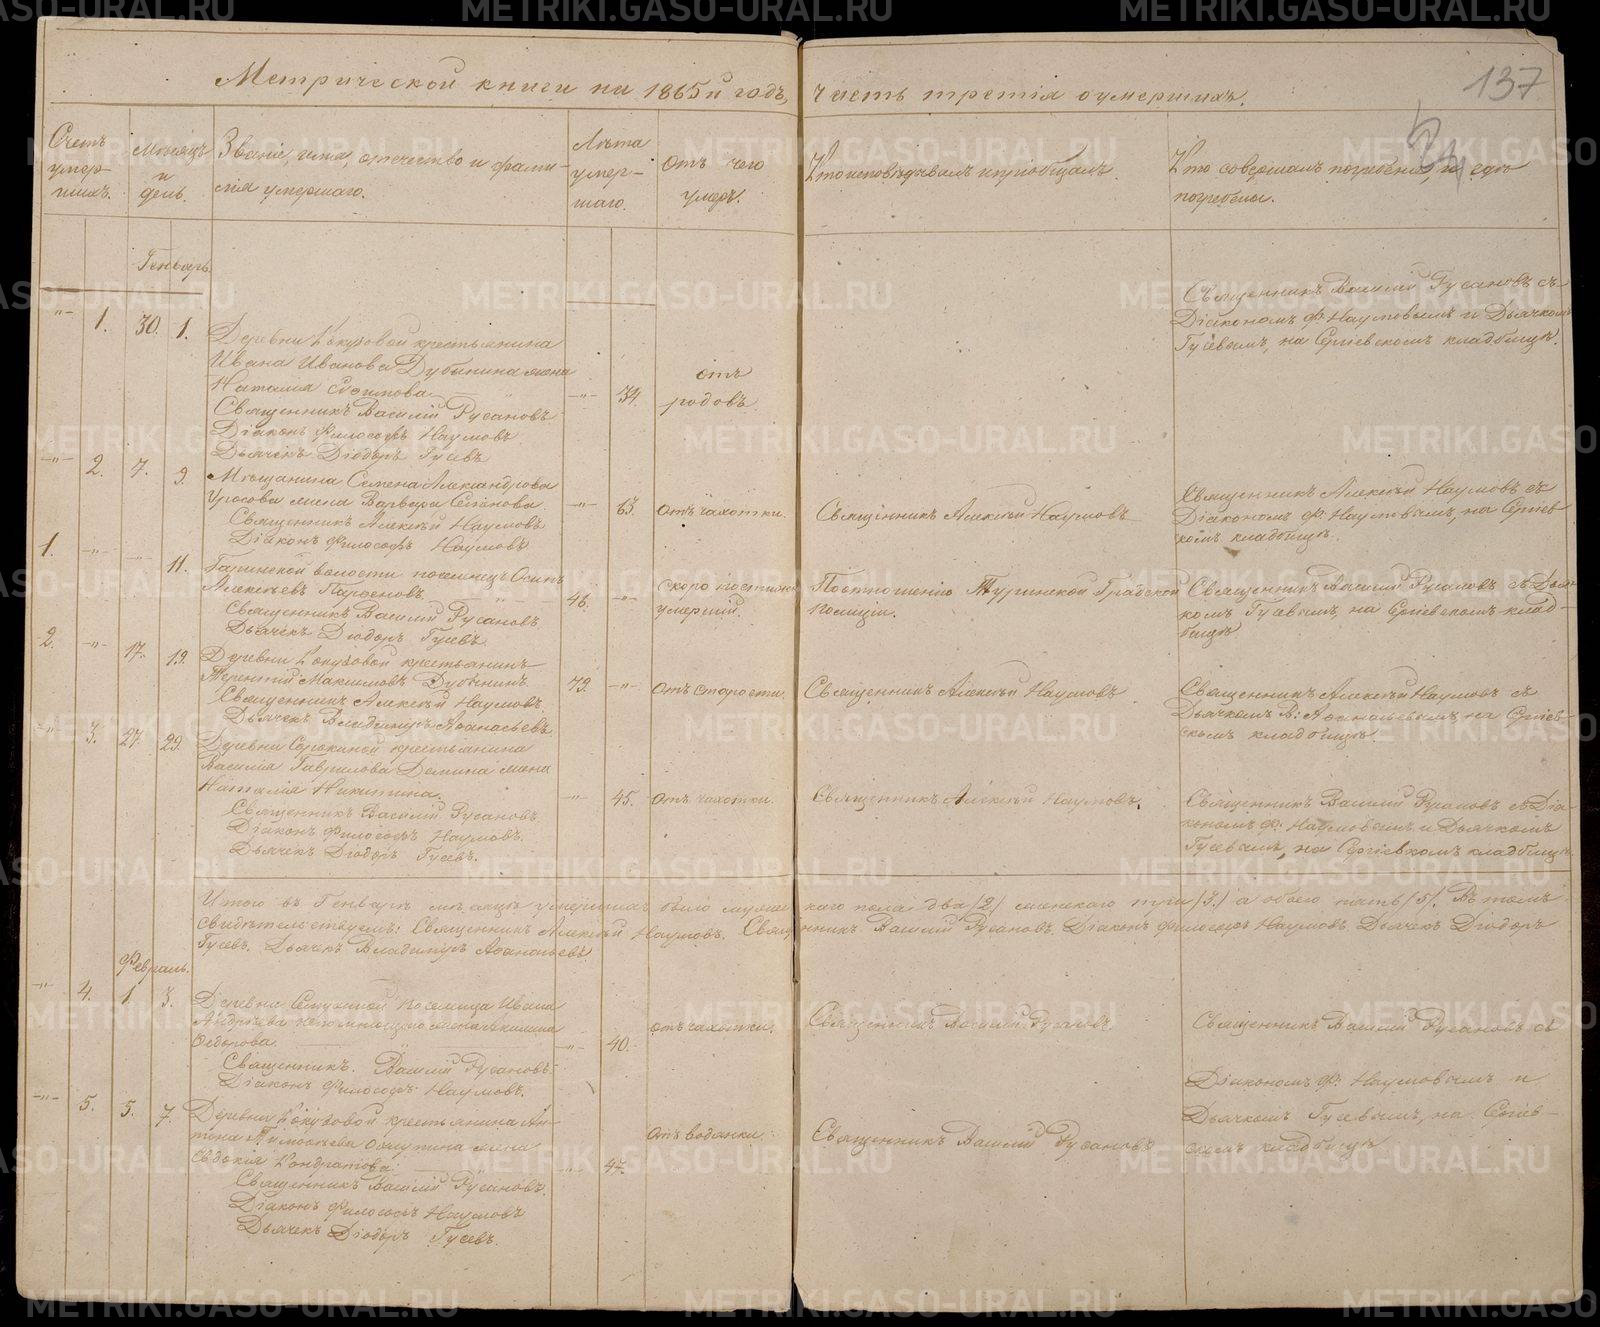 Метрической книги на 1865й годъ, часть третія о умершихъ.
137
Счетъ умер-шихъ.
Мѣсяцъ и день.
Званіе, имя, отчество и фами-
лія умершаго.
Лѣта умер-шаго.
Отъ чего умеръ.
Кто исповѣдывалъ и пріобщалъ.
Кто совершалъ погребеніе, и гдѣ
погребены.
Генварь.
-"- 1. 30. 1.
Деревни Кокузовой крестьянина
Ивана Иванова Дубынина жена
Наталія
Священникъ Василій Русановъ
Діаконъ Философъ Наумовъ
Дьячекъ Діодоръ Гусевъ
-"- 34.
отъ
родовъ
Священникъ Василій Русановъ съ
Діакономъ Ф. Наумовымъ и Дьячкомъ
Гусевымъ, на Сергіевскомъ кладбищѣ.
-"- 2. 7. 9.
Мѣщанина Семена Александрова
жена Варвара
Священникъ Алексѣй Наумовъ
Діаконъ Философъ Наумовъ
-"- 63.
Отъ чахотки.
Священникъ Алексѣй Наумовъ
Священникъ Алексѣй Наумовъ съ
Діакономъ Ф. Наумовымъ, на Сергіев
комъ кладбищѣ.
1. -"- -"- 11.
Гаринской волости поселенецъ Осипъ
Алексѣевъ Парѳеновъ
Священникъ Василій Русановъ
Дьячекъ Діодоръ Гусевъ
46. -"-
скоропостижно
умершій.
По отношенію Туринской Градской
Полиціи.
Священникъ Василій Русановъ съ Дьяч-
комъ Гусевымъ, на Сергіевскомъ клад-
бищѣ
2. -"- 17. 19.
Деревни Кокузовой крестьянинъ
Терентій Максимовъ Дубынинъ
Священникъ Алексѣй Наумовъ.
Дьячекъ Владимиръ Аѳанасьевъ
79. -"-
Отъ старости.
Священникъ Алексѣй Наумовъ
Священникъ Алексѣй Наумовъ съ
Дьячкомъ В: Аѳанасьевымъ на Сергіев-
скомъ кладбищѣ.
-"- 3. 27. 29.
Деревни Сорокиной крестьянина
Василія Гаврилова Демина жена
Наталія Никитина.
Священникъ Василій Русановъ
Діаконъ Философъ Наумовъ.
Дьячекъ Діодоръ Гусевъ.
-"- 45.
Отъ чахотки.
Священникъ Алексѣй Наумовъ.
Священникъ Василій Русановъ съ Діа-
кономъ Ф: Наумовымъ и Дьячкомъ
Гусевымъ, на Сергіевкомъ кладбищѣ.
Итого въ Генварѣ мѣсяцѣ умершихъ было мужескаго пола два /2/ женскаго три /3./ а обоего пять /5/. Въ томъ
свидѣтельствуемъ: Священникъ Алексѣй Наумовъ. Священникъ Василій Русановъ. Діаконъ Философъ Наумовъ Дьячекъ Діодоръ
Гусевъ. Дьячекъ Владимиръ Аѳанасьевъ
Февраль.
-"- 4. 1. 3.
Деревни поселенца Ивана
Андрѣева непомнющаго жена Акилина
Ѳедорова.
Священникъ. Василій Русановъ
Діаконъ Философъ Наумовъ.
-"- 40.
отъ чахотки.
Священникъ Василій Русановъ.
Священникъ Василій Русановъ съ
Діакономъ Ф: Наумовымъ и
Дьячкомъ Гусевымъ, на Сергіев-
скомъ кладбищѣ
-"- 5. 5. 7.
Деревни Кокузовой крестьянина Ан-
тона Тимоѳеева жена
Евдокія Кондратова
Священникъ Василій Русановъ.
Діаконъ Философъ Наумовъ
Дьячекъ Діодоръ Гусевъ.
-"- 47.
Отъ водянки.
Священникъ Василій Русановъ
METRIKI.GASO-URAL.RU